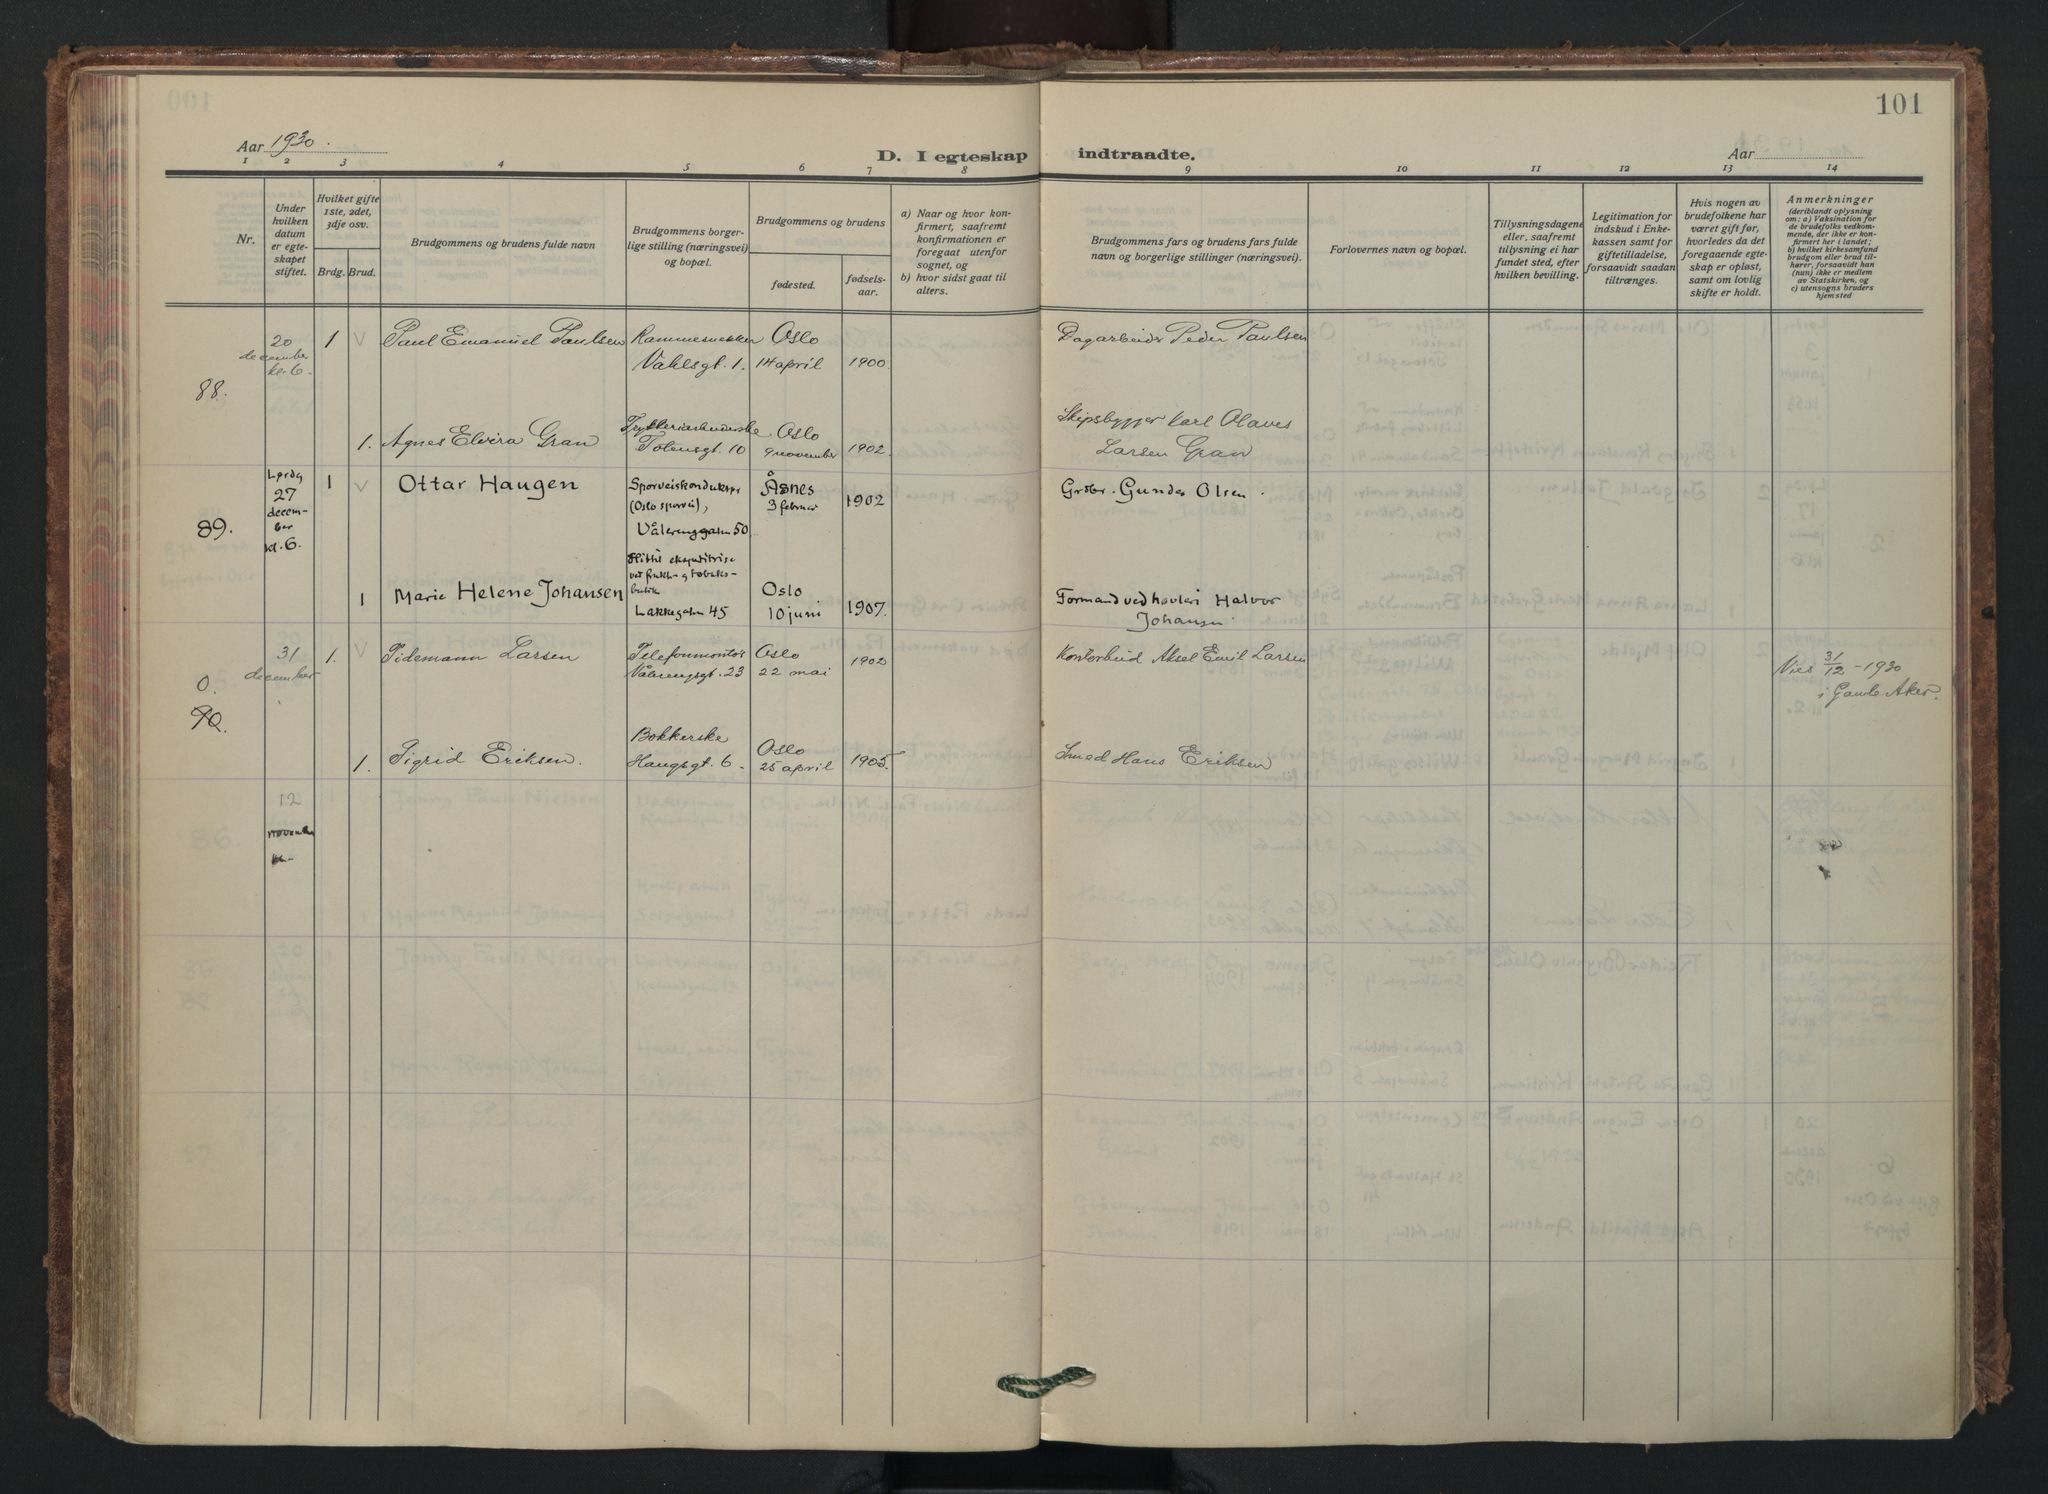 101
Aar 1930.
D. I egteskap indtraadte.
Aar
1 2 3 4 5 6 7 8 9 10 11 12 13 14
Nr.
Under hvilken datum er egteskapet stiftet.
Hvilket gifte 1ste, 2det, 3dje osv.
Brdg. Brud.
Brudgommens og brudens fulde navn
Brudgommens borgerlige stilling (næringsvei) og bopæl.
Brudgommens og brudens
fødested.
fødselsaar.
a) Naar og hvor konfirmert, saafremt konfirmationen er foregaat utenfor sognet, og
b) hvor sidst gaat til alters.
Brudgommens fars og brudens fars fulde navn og borgerlige stillinger (næringsvei).
Forlovernes navn og bopæl.
Tillysningsdagene eller, saafremt tillysning ei har fundet sted, efter hvilken bevilling.
Legitimation for indskud i Enkekassen samt for giftetilladelse, forsaavidt saadan tiltrænges.
Hvis nogen av brudefolkene har været gift før, hvorledes da det foregaaende egteskap er opløst, samt om lovlig skifte er holdt.
Anmerkninger
(deriblandt oplysning om: a) Vaksination for de brudefolks vedkommende, der ikke er konfirmert her i landet; b) hvilket kirkesamfund brudgom eller brud tilhører, forsaavidt han (hun) ikke er medlem av Statskirken, og c) utensogns bruders hjemsted
88.
20 december kl. 6.
1 V Paul Emanuel Paulsen
Vahlsgt. 1.
Oslo 14 april 1900.
Dagarbeider Peder Paulsen
1. Agnes Elvira Gran
Tøiensgt. 10
Oslo 9 november 1902.
Skipsbygger Karl Olaves Larsen Gran
89.
Lørdag 27 december kl. 6.
1 V Ottar Haugen
Sporveiskonduktør (Oslo sporvei),
Vålerenggatn 50
Åsnes 3 februar 1902
Grdbr. Gunder Olsen.
1 Marie Helene Johansen
Lakkegatn 45
Oslo 10 juni 1907.
Formand ved høvleri Halvor Johansen.
0.
90.
31 december
1. V Tidemann Larsen
Telefonmontør
Vålerengsgt. 23
Oslo 22 mai 1902
Kontorbud Aksel Emil Larsen
Vies 31/12 - 1930 i Gamle Aker.
1. Sigrid Eriksen.
Haugsgt. 6.
Oslo 25 april 1905.
Smed Hans Eriksen
12 november
kl.